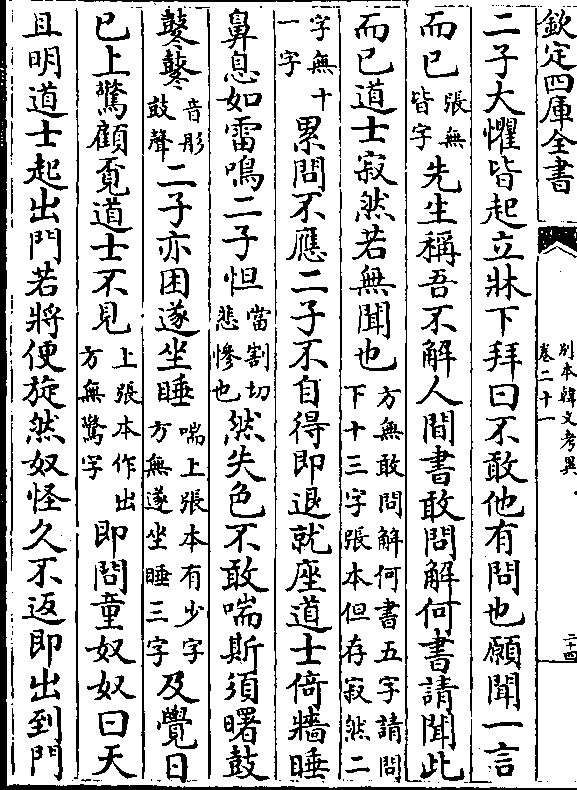 欽定四庫全書
別本韓文考異
卷二十一
二十四
二子大懼皆起立牀下拜曰不敢他有問也願聞一言
而已張無皆字先生稱吾不解人間書敢問解何書請聞此
而已道士寂然若無聞也方無敢問解何書五字請問下十三字張本但存寂然二
字無十一字累問不應二子不自得即退就座道士倚牆睡
鼻息如雷鳴二子怛當割切悲慘也然失色不敢喘斯須曙鼓
鼕鼕音彤鼓聲二子亦困遂坐睡喘上張本有少字方無遂坐睡三字及覺日
已上驚顧覔道士不見上張本作出方無驚字即問童奴奴曰天
且明道士起出門若將便旋然奴怪久不返即出到門